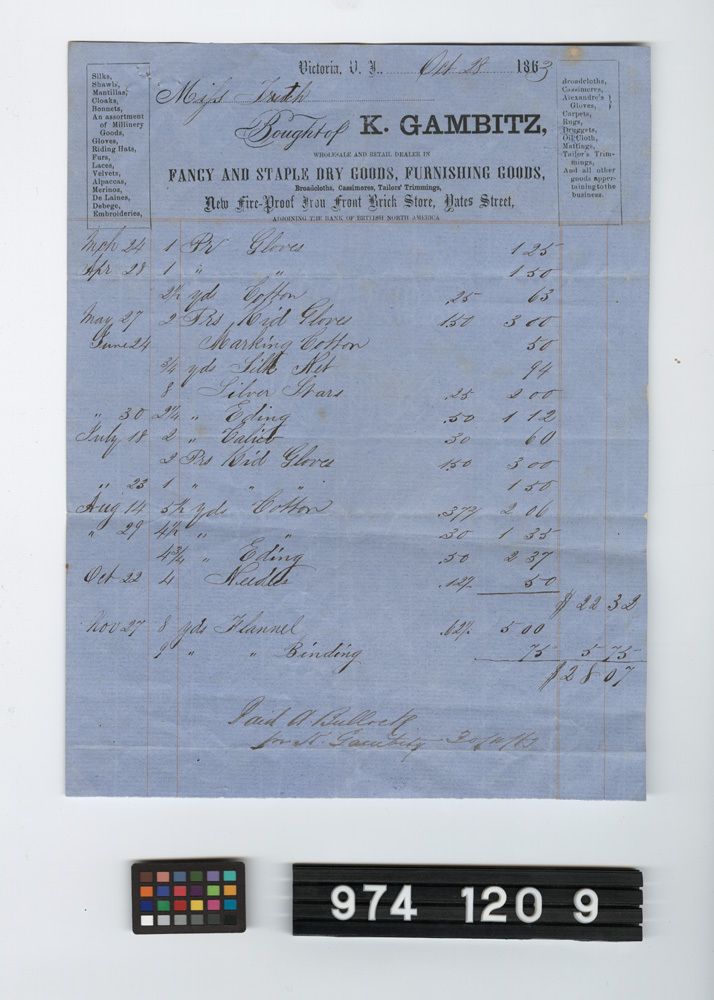 Victoria, V. I., Oct 28 1863
Silks,
Shawls,
Mantillas,
Cloaks,
Bonnets,
An assortment
of Millinery
Goods,
Gloves,
Riding Hats,
Furs,
Laces,
Velvets,
Alpaccas,
Merinos,
De Laines,
Debege,
Embroideries,
Miss
Bought of K. GAMBITZ,
WHOLESALE AND RETAIL DEALER IN
FANCY AND STAPLE DRY GOODS, FURNISHING GOODS,
Broadcloths, Cassimeres, Tailors' Trimmings,
New Fire-Proof Iron Front Brick Store, Yates Street,
ADJOINING THE BANK OF BRITISH NORTH AMERICA
Broadcloths,
Cassimeres,
Alexandre's
Gloves,
Carpets,
Rugs,
Druggets,
Oil Cloth,
Mattings,
Tailor's Trim-
mings,
And all other
goods apper-
taining to the
business.
Mch 24 1 Pr Gloves 1 25
Apr 28 1 " " 1 50
2½ yds Cotton .25 63
May 27 2 Prs Kid Gloves 1.50 3 00
June 24 Marking Cotton 50
¾ yds Silk Net 94
8 Silver Stars .25 2 00
" 30 2¼ " Eding .50 1 12
July 18 2 " Calico 30 60
2 Prs Kid Gloves 1.50 3 00
" 23 1 " " " 1 50
Aug 14 5½ yds Cotton .37½ 2 06
" 29 4½ " " .30 1 35
4¾ " Eding .50 2 37
Oct 22 4 Needles .12½ 50
$ 22 32
Nov 27 8 yds Flannel .62½ 5 00
9 " " Binding 75 5 75
$28 07
Paid A Bullock
for K. Gambitz
974 120 9